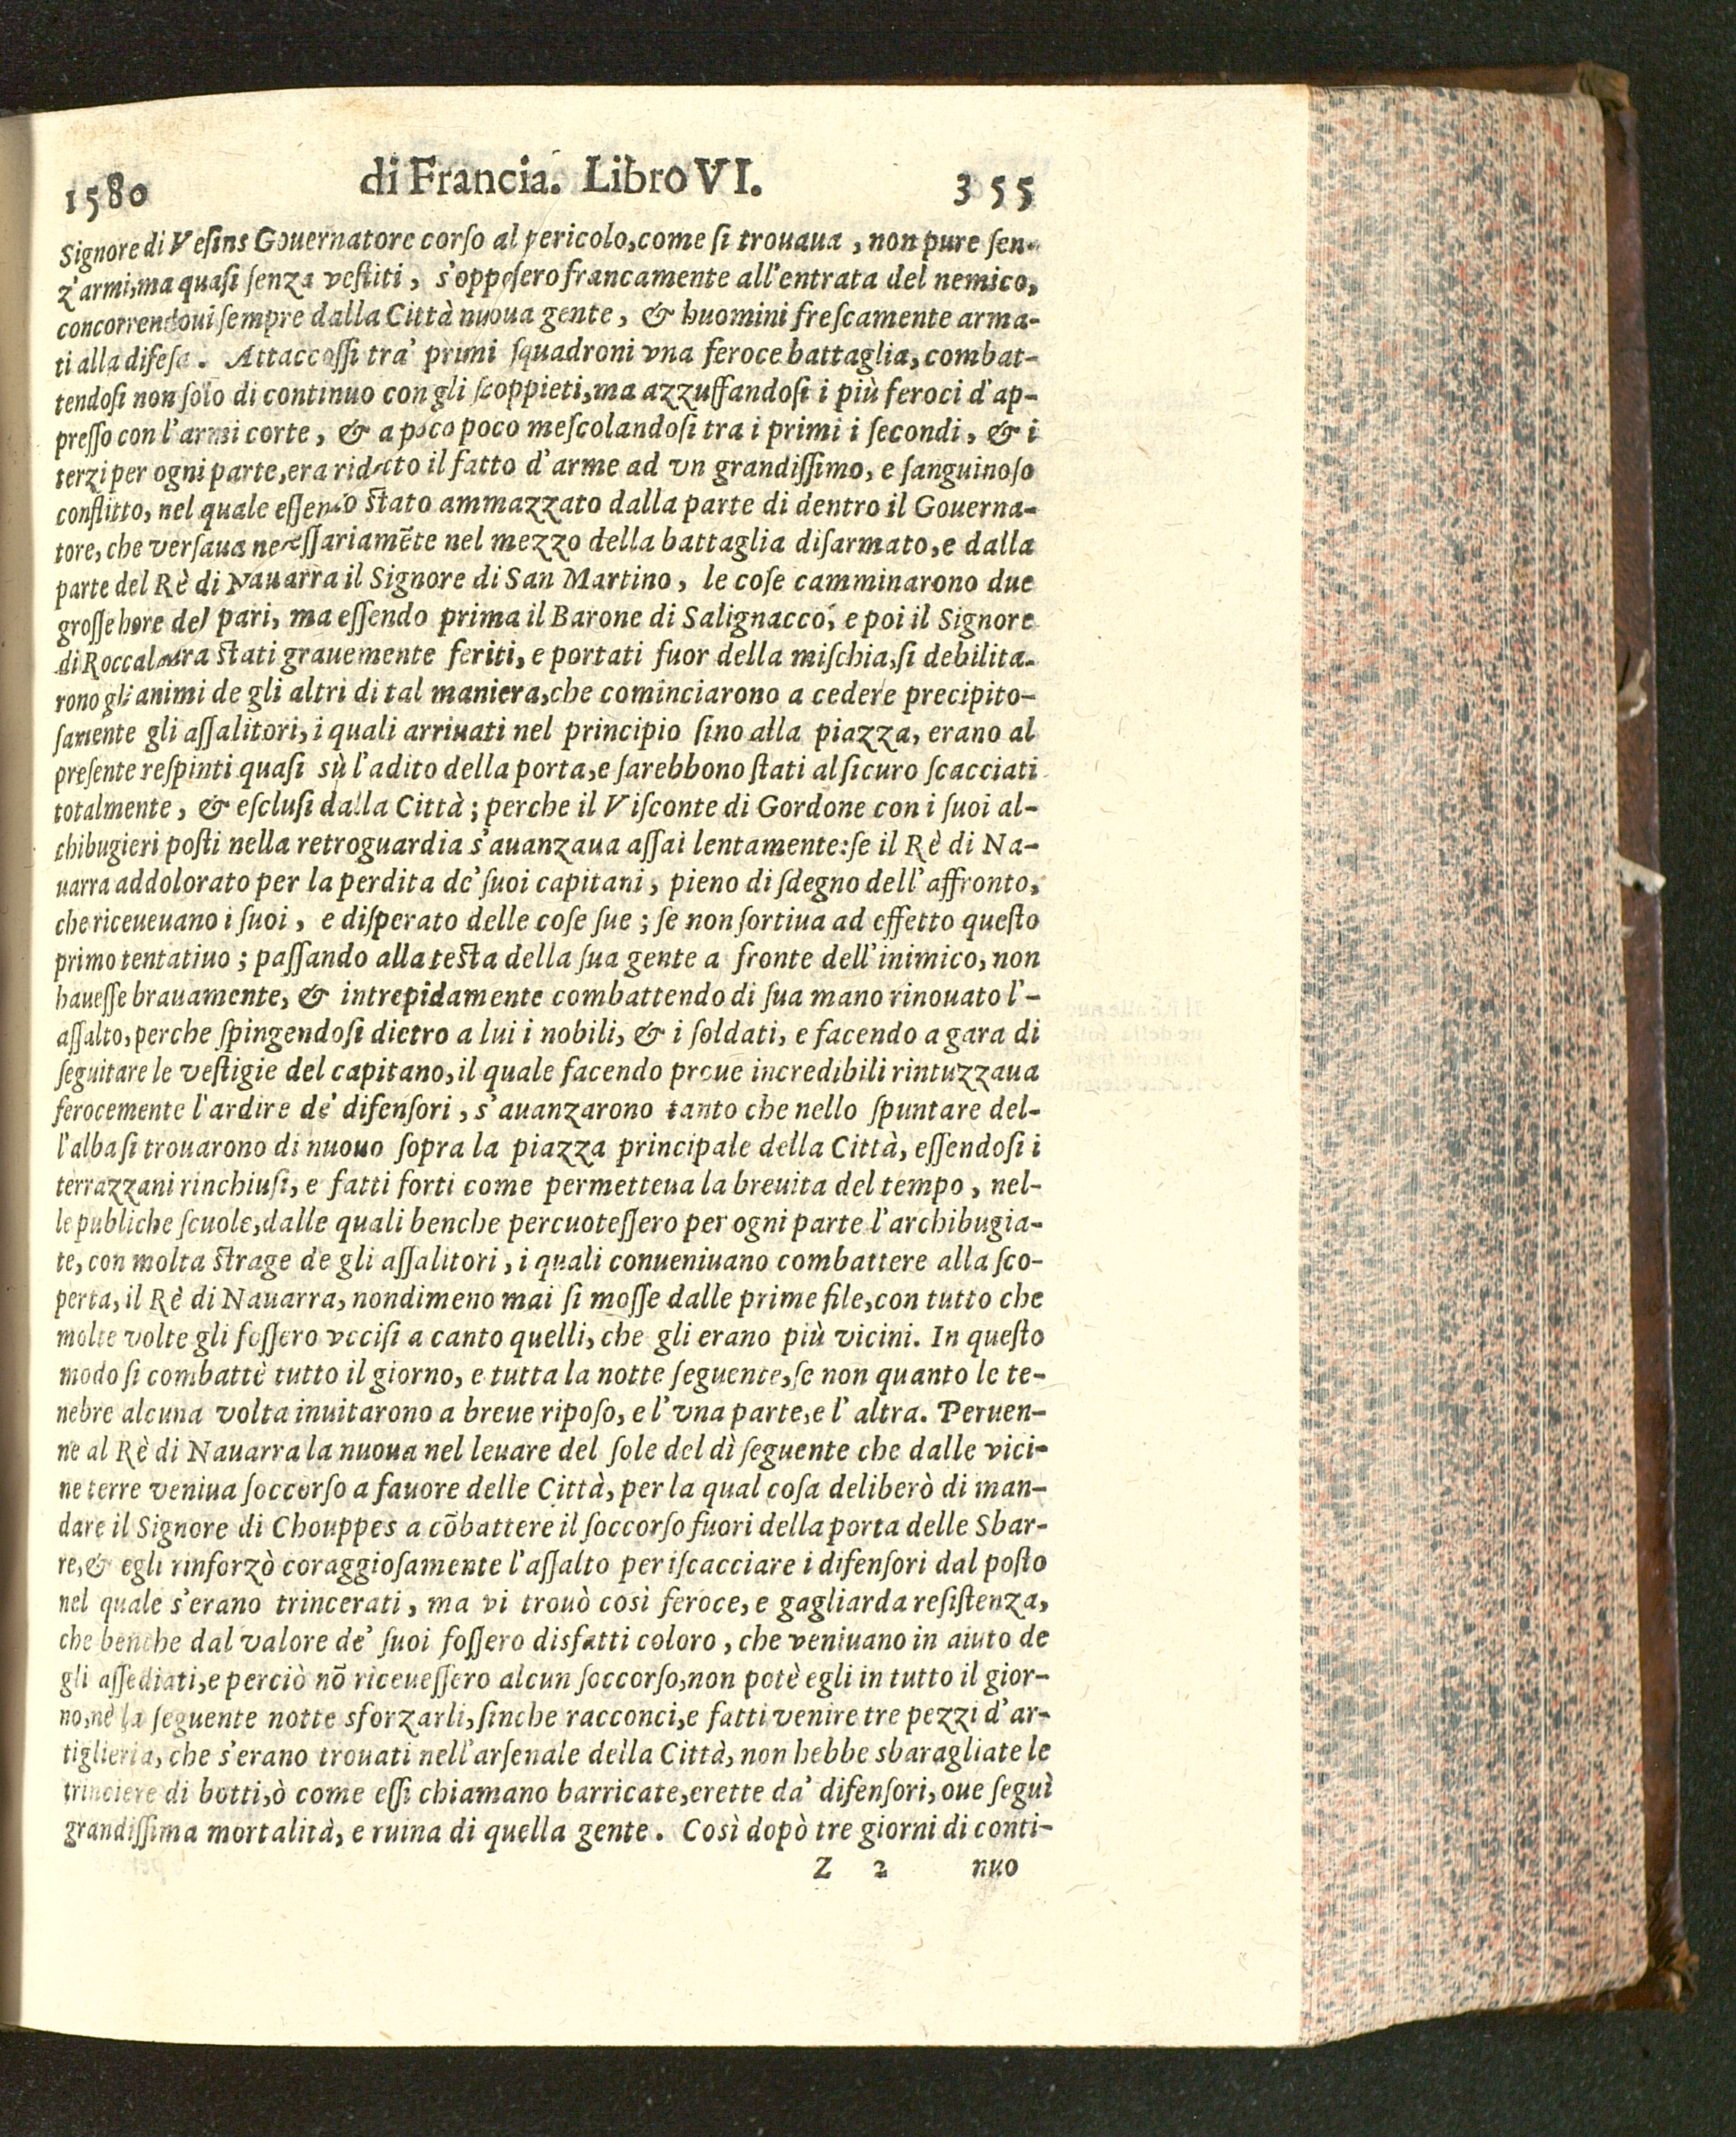 1580 di Francia. Libro VI. 355
Signore di Veſins Gouernatore corſo al pericolo, come ſi trouaua, non pure ſen-
z'armi, ma quaſi ſenza veſtiti, s'oppoſero francamente all'entrata del nemico,
concorrendoui ſempre dalla Città nuoua gente, & huomini freſcamente arma-
ti alla difeſa. Attaccoſſi tra' primi ſquadroni vna feroce battaglia, combat-
tendoſi non ſolo di continuo con gli ſcoppieti, ma azzuffandoſi i più feroci d'ap-
preſſo con l'armi corte, & a poco poco meſcolandoſi tra i primi i ſecondi, & i
terzi per ogni parte, era ridotto il fatto d'arme ad vn grandiſſimo, e ſanguinoſo
conflitto, nel quale eſſendo ſtato ammazzato dalla parte di dentro il Gouerna-
tore, che verſaua neceſſariamēte nel mezzo della battaglia diſarmato, e dalla
parte del Rè di Nauarra il Signore di San Martino, le coſe camminarono due
groſſe hore del pari, ma eſſendo prima il Barone di Salignacco, e poi il Signore
di Roccalaura ſtati grauemente feriti, e portati fuor della miſchia, ſi debilita-
rono gli animi de gli altri di tal maniera, che cominciarono a cedere precipito-
ſamente gli aſſalitori, i quali arriuati nel principio ſino alla piazza, erano al
preſente reſpinti quaſi sù l'adito della porta, e ſarebbono ſtati al ſicuro ſcacciati
totalmente, & eſcluſi dalla Città; perche il Viſconte di Gordone con i ſuoi al-
chibugieri poſti nella retroguardia s'auanzaua aſſai lentamente: ſe il Rè di Na-
uarra addolorato per la perdita de' ſuoi capitani, pieno di ſdegno dell'affronto,
che riceueuano i ſuoi, e diſperato delle coſe ſue; ſe non ſortiua ad effetto queſto
primo tentatiuo; paſſando alla teſta della ſua gente a fronte dell'inimico, non
haueſſe brauamente, & intrepidamente combattendo di ſua mano rinouato l'-
aſſalto, perche ſpingendoſi dietro a lui i nobili, & i ſoldati, e facendo a gara di
ſeguitare le veſtigie del capitano, il quale facendo proue incredibili rintuzzaua
ferocemente l'ardire de' difenſori, s'auanzarono tanto che nello ſpuntare del-
l'alba ſi trouarono di nuouo ſopra la piazza principale della Città, eſſendoſi i
terrazzani rinchiuſi, e fatti forti come permetteua la breuita del tempo, nel-
le publiche ſcuole, dalle quali benche percuoteſſero per ogni parte l'archibugia-
te, con molta ſtrage de gli aſſalitori, i quali conueniuano combattere alla ſco-
perta, il Rè di Nauarra, nondimeno mai ſi moſſe dalle prime file, con tutto che
molte volte gli foſſero vcciſi a canto quelli, che gli erano più vicini. In queſto
modo ſi combattè tutto il giorno, e tutta la notte ſeguente, ſe non quanto le te-
nebre alcuna volta inuitarono a breue ripoſo, e l'vna parte, e l'altra. Peruen-
ne al Rè di Nauarra la nuoua nel leuare del ſole del dì ſeguente che dalle vici-
ne terre veniua ſoccorſo a fauore delle Città, per la qual coſa deliberò di man-
dare il Signore di Chouppes a cōbattere il ſoccorſo fuori della porta delle Sbar-
re, & egli rinforzò coraggioſamente l'aſſalto per iſcacciare i difenſori dal poſto
nel quale s'erano trincerati, ma vi trouò così feroce, e gagliarda reſiſtenza,
che benche dal valore de' ſuoi foſſero disfatti coloro, che veniuano in aiuto de
gli aſſediati, e perciò nō riceueſſero alcun ſoccorſo, non potè egli in tutto il gior-
no, nè la ſeguente notte sforzarli, ſinche racconci, e fatti venire tre pezzi d'ar-
tiglieria, che s'erano trouati nell'arſenale della Città, non hebbe sbaragliate le
trinciere di botti, ò come eſſi chiamano barricate, erette da' difenſori, oue ſeguì
grandiſſima mortalità, e ruina di quella gente. Così dopò tre giorni di conti-
Z 2 nuo